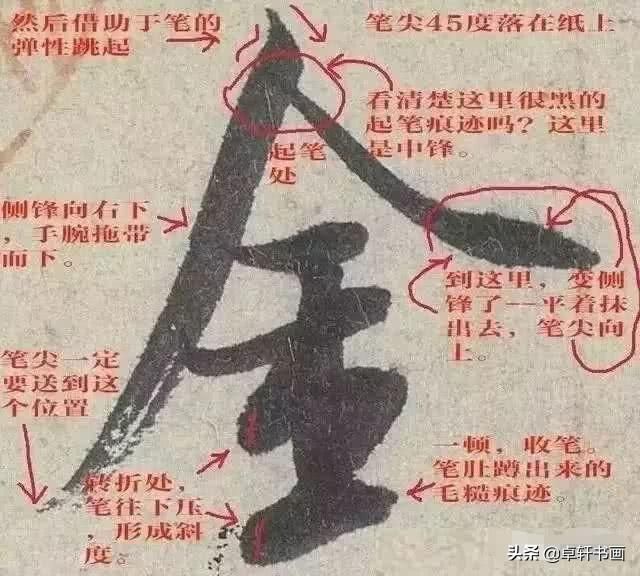 然后借助于笔的
弹性跳起
笔尖45度落在纸上
看清楚这里很黑的
起笔痕迹吗？这里
是中锋。
起笔
处
侧锋向右下
，手腕拖带
而下。
到这里，变侧
锋了--平着抹
出去，笔尖向
上。
笔尖一定
要送到这
个位置
一顿，收笔。
笔肚蹲出来的
毛糙痕迹。
转折处，
笔往下压
，形成斜
度。
金
头条 @卓轩书画